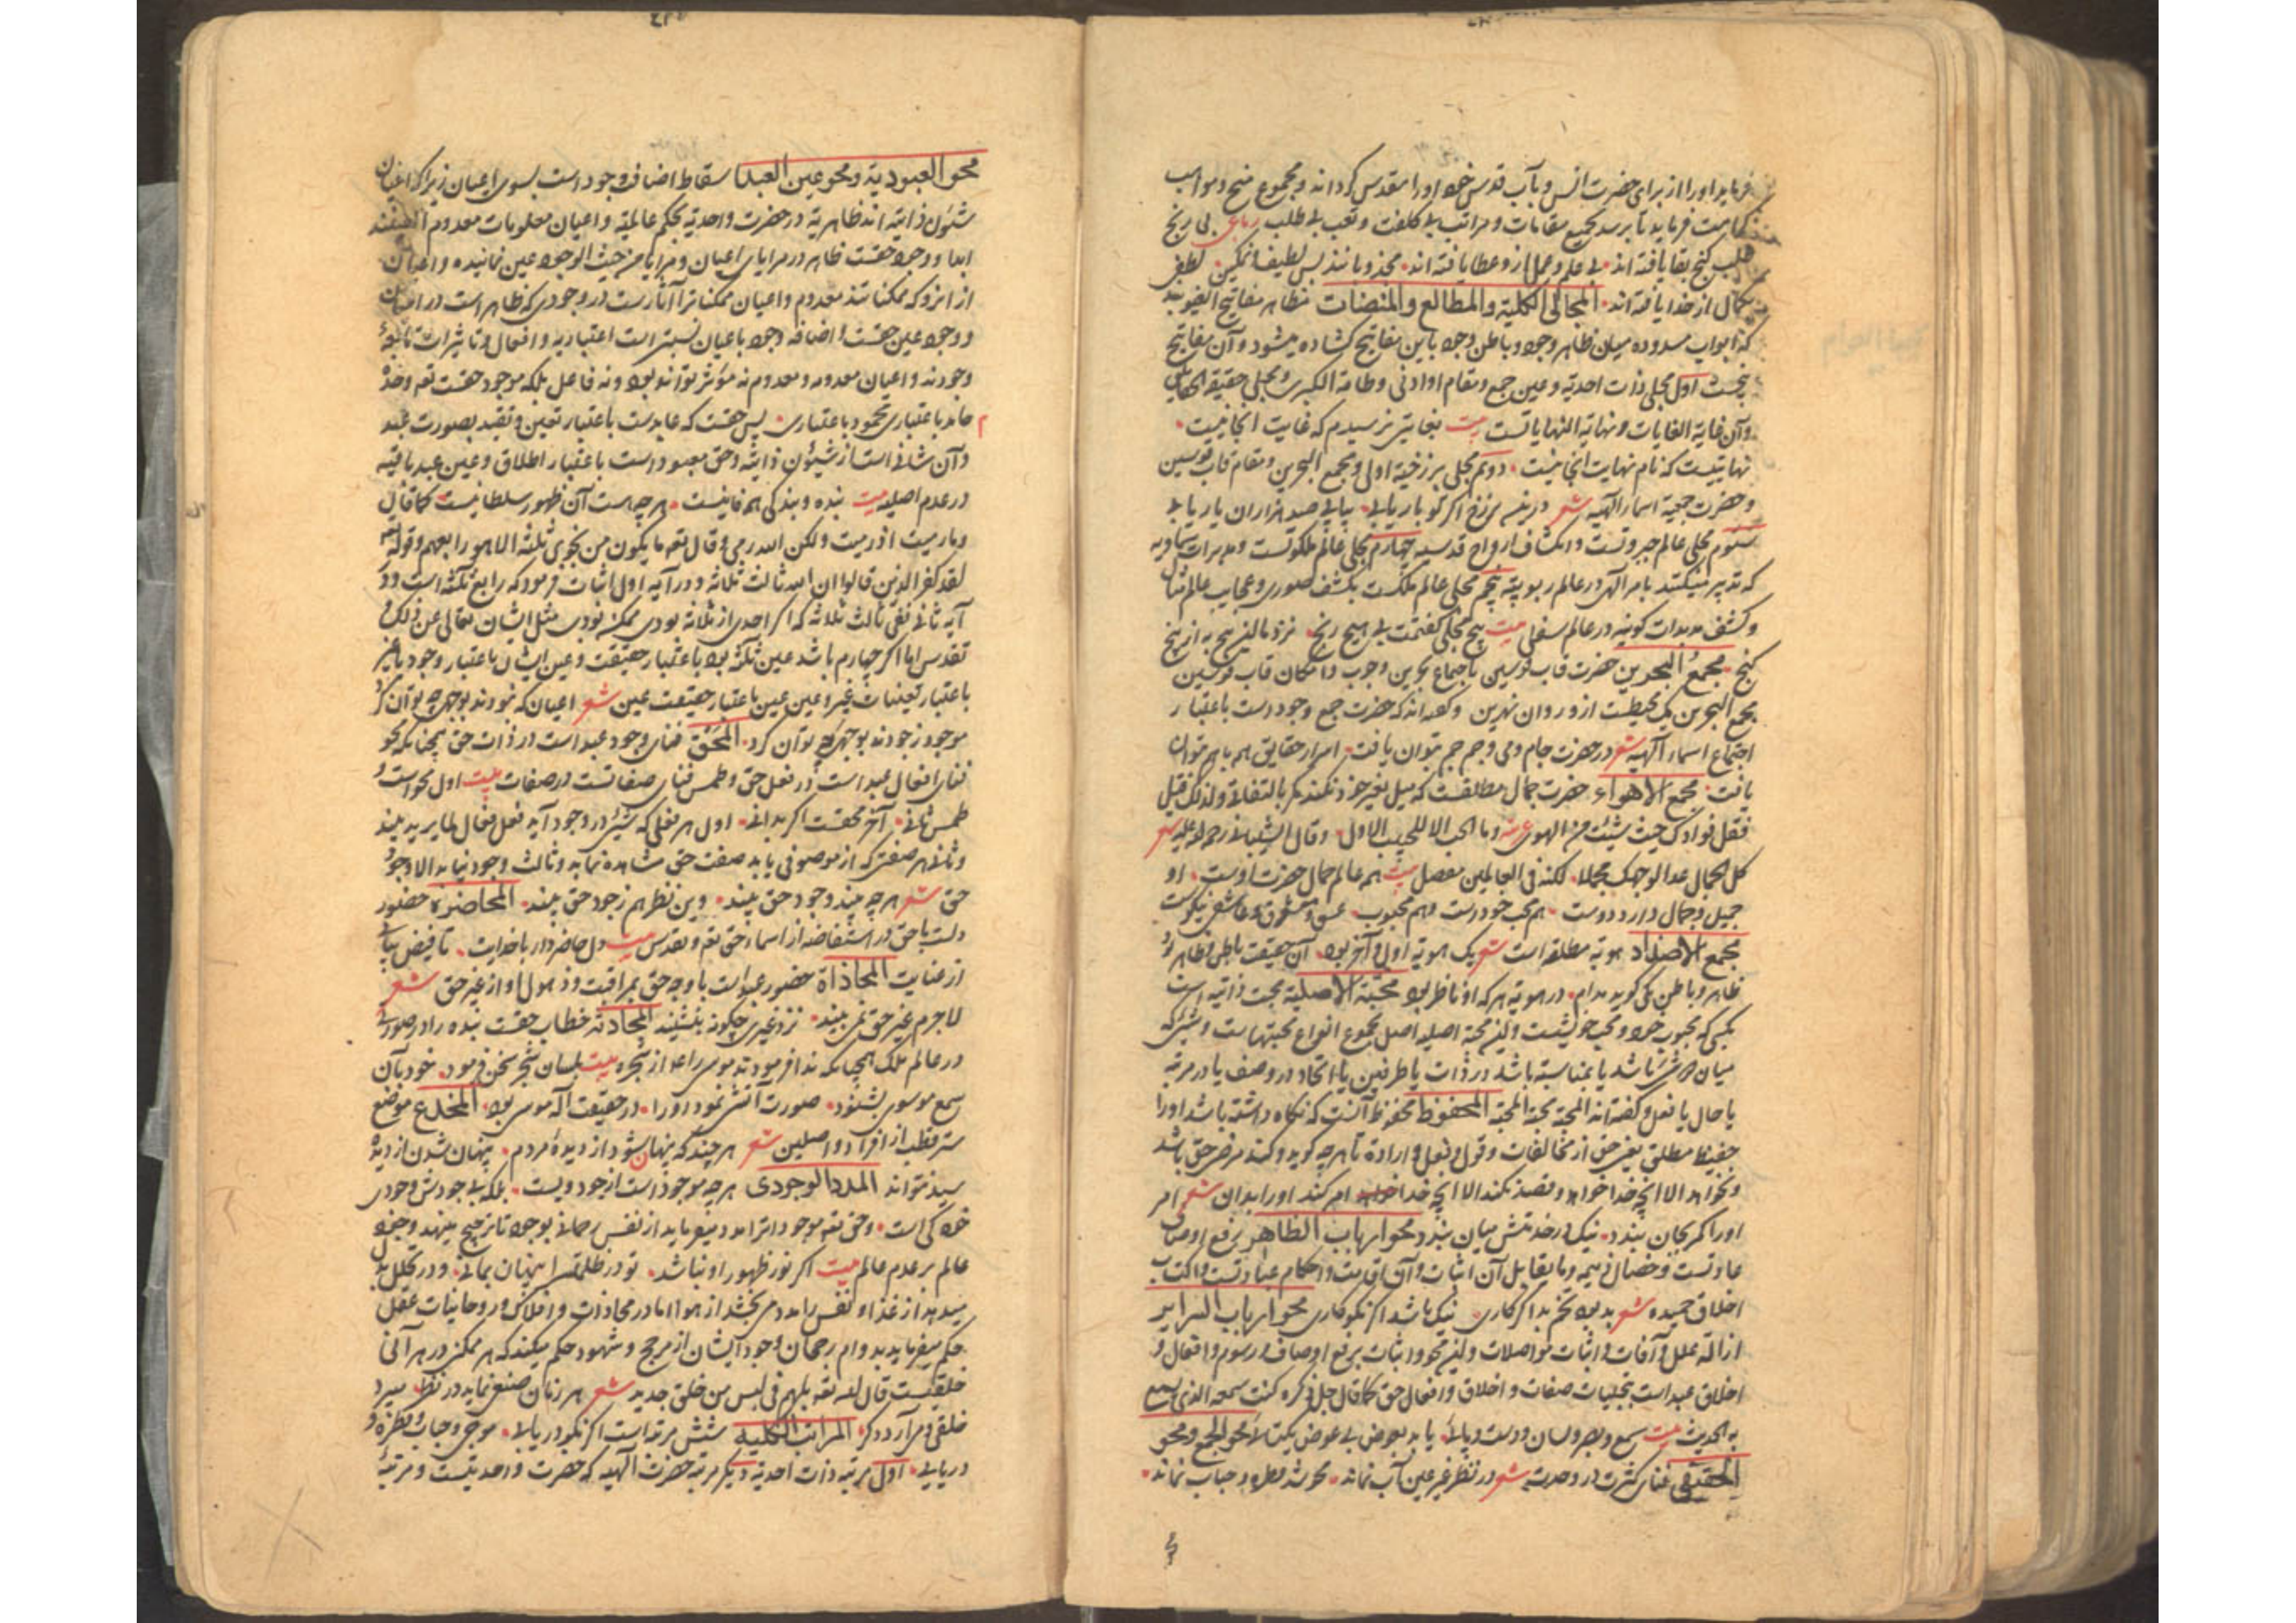 فرماید اورا از برای حضرت انس و بآب قدس خود اورا مقدس گرداند و مجموع منح و مواهب
کرامت فرماید تا برسد بجمیع مقامات و مراتب بی کلفت و تعب بی طلب رباعی بی رنج
طلب گنج بقا یافته اند بی علم و عمل از و عطا یافته اند مجذوبانند بس لطیف و تمکین لطفی
کمال از خدا یافته اند المجالی الکلیة والمطالع والمنضات مظاهر مفاتیح الغیوبند
که ابواب مسدوده میان ظاهر وجود و باطن وجود باین مفاتیح کشاده میشود و آن مفاتیح
پنجست اول مجلی ذات احدیة و عین جمع و مقام او ادنی و طامة الکبری و مجلی حقیقة الحقایق
وآن غایة الغایات و نهایة النهایاتست بیت بغایتی نرسیدم که غایت انجا نیست
نهایتیست که نام نهایت انجا نیست دوم مجلی برزخیة اولی و مجمع البحرین و مقام قاب قوسین
وحضرت جمعیة اسماء الهیه شعر در برزخ اگر تو بار یابی یابی صد هزاران یار یابی
سیوم مجلی عالم جبروتست و انکشاف ارواح قدسیه چهارم مجلی عالم ملکوتست و مدبرات سماویه
که تدبیر میکنند بامر الهی در عالم ربوبیة پنجم مجلی عالم ملکست بکشف صوری و عجایب عالم مثال
و کشف مدبرات کونیه در عالم سفلی بیت پنج مجلی گفتمت بی هیچ رنج نزد ما این پنج به از پنج
گنج مجمع البحرین حضرت قاب قوسین باجماع بحرین وجوب و امکان قاب قوسین
مجمع البحرین یک محیطست ازو روان نهرین و گفته اند که حضرت جمع وجود است باعتبار
اجتماع اسماء الهیه شعر در حضرت جام و می و جم جم بتوان یافت اسرار حقایق همه با هم بتوان
یافت مجمع الاهواء حضرت جمال مطلقست که میل بغیر خود نکند مگر بالتفاتی ولذلک قیل
فنقل فوادک حیث شئت من الهوی وما الحب الا للحبیب الاول وقال الشیبانی رحمه الله علیه شعر
کل الجمال غدا لوجهک مجملا لکنه فی العالمین مفصل بیت همه عالم جمال حضرت اوست او
جمیل و جمال دارد دوست هم محب خود است و هم محبوب عشق و معشوق و عاشق نیکوست
مجمع الاضداد هویة مطلقه است شعر یک هویة اول و آخر بود آن حقیقت باطن و ظاهر بود
ظاهر و باطن یکی گوید مدام در هویة هر که او ناظر بود محبة الاصلیة محبت ذاتیه است
یکی که محبوب خود و محب خویشست و این محبة اصلیه اصل مجموع انواع محبتهاست و شئ که
میان دو شئ باشد یا بمناسبة باشد در ذات یا طرفین یا اتحاد در وصف یا در مرتبه
یا حال یا فعل و گفته اند المحبة محبة المحبة المحفوظ محفوظ آنست که نگاه داشته باشد اورا
حفیظ مطلق یعنی حق از مخالفات و قول و فعل و ارادة تا هر چه گوید و کند مرضی حق باشد
و نخواهد الا انچه خدا خواهد و قصد نکند الا انچه خدا امر کند اورا بدان شعر امر
اورا کمر بجان بندد نیک در خدمتش میان بندد محو ارباب الظاهر رفع اوصاف
عادتست و خصال ذمیمه و ما یقابل آن اثبات و آن اقامت و احکام عبادتست و اکتساب
اخلاق حمیده شعر بد بود تخم بد اگر کاری نیک باشد اگر نکو کاری محو ارباب السرایر
ازاله علل و آفات و اثبات مواصلات و این محو و اثبات برفع اوصاف و رسوم و افعال و
اخلاق عبد است بتجلیات صفات و اخلاق و افعال حق کما قال جل ذکره کنت سمعه الذی یسمع
به الحدیث بیت سمع و بصر و لسان و دست و پا یابد بعوض بی عوض یکتا محو الجمع و محو
الحقیقی فنای کثرت در وحدت شعر در نظر غیر عین آب نماند محو شد قطره و حباب نماند
محو العبودیة و محو عین العبد اسقاط اضافت وجود است بسوی اعیان زیرا که اعیان
شئون ذاتیه اند ظاهریة در حضرت واحدیة بحکم عالمیة و اعیان معلومات معدوم العینند
ابدا و وجود حقست ظاهر در مرایای اعیان و مرایا من حیث الوجود عین نمانیده و اعیان
از انرو که ممکناتند معدوم و اعیان ممکناترا آثارست در وجودی که ظاهر است در اعیان
و وجود عین حقست و اضافه وجود باعیان نسبتی است اعتباریه و افعال و تاثیرات تابعه
وجودند و اعیان معدومه و معدوم نه مؤثر تواند بود و نه فاعل بلکه موجود حقست تعالی وحده
حامد باعتباری محمود باعتباری پس حقست که عابدست باعتبار تعین و تقید بصورت عبد
و آن شانی است از شئون ذاتیه و حق معبود است باعتبار اطلاق و عین عبد باقیه
در عدم اصلیه بیت بنده و بندگی همه فانیست هر چه هست آن ظهور سلطانیست کما قال
وما رمیت اذ رمیت ولکن الله رمی وقال تعالی ما یکون من نجوی ثلثة الا هو رابعهم وقوله تعالی
لقد کفر الذین قالوا ان الله ثالث ثلاثة و در آیه اولی اثبات فرمود که رابع ثلثه است و در
آیه ثانی نفی ثالث ثلاثه که اگر احدی از ثلاثه بودی ممکنه بودی مثل ایشان تعالی عن ذلک و
تقدس اما اگر چهارم باشد عین ثلثه بود باعتبار حقیقت و عین ایشان باعتبار وجود یا غیر
باعتبار تعینات غیر و عین عین باعتبار حقیقت عین شعر اعیان که نمودند بوجهی چه توان کرد
موجود ز جودند بوجهی چه توان کرد المحق فنای وجود عبد است در ذات حق همچنانکه محو
فنای افعال عبد است در فعل حق و طمس فنای صفاتست در صفات بیت اول محو است و
طمس ثانی آخر محقست اگر بدانی اول هر فعلی که شئ در وجود آید فعل فعال لما یرید بیند
و ثانی هر صفتی که از موصوفی یابد صفت حق مشاهده نماید و ثالث وجود نیابد الا وجود
حق شعر هر چه بیند وجود حق بیند وین نظر هم ز جود حق بیند المحاضرة حضور
دلست با حق در استفاضه از اسماء حق تعالی و تقدس بیت دل حاضر دار با خدایت تا فیض بیابی
از عنایت المحاذاة حضور عبد است با وجه حق بمراقبت و ذهول او از غیر حق شعر
لاجرم غیر حق نمی بیند نزد غیری چگونه بنشیند المحادثه خطاب حقست بنده را در صورتی
در عالم ملک همچنانکه ندا فرمودند موسی را ع از شجره بیت بلسان شجر سخن فرمود خود بآن
سمع موسوی بشنود صورت آتشی نمود اورا در حقیقت اله موسی بود المخدع موضع
ستر قطب از افراد واصلین شعر هر چند که پنهان شود از دیده مردم پنهان شدن از دیده
سید نتواند المدد الوجودی هر چه موجود است از جود ویست بلکه بی جودش وجودی
خود کی است و حق تعالی موجود اترا مدد میفرماید از نفس رحمانی بوجود تا ترجیح میبهد وجود
عالم بر عدم عالم بیت اگر نور ظهور او نباشد تو در ظلمت سرا پنهان بمانی و در تحلل بدل
میدهد از غذا و نفس را مدد می بخشد از هوا اما در محاذات و افلاک و روحانیات عقل
حکم میفرماید بدوام رجحان وجود ایشان از مرجح و شهود حکم میکند که هر ممکن در هر آنی
خلقیست قال الله تعالی بل هم فی لبس من خلق جدید شعر هر زمان صنع می نماید در نظر میبرد
خلقی و می آرد دگر المراتب الکلیه شش مرتبه است اگر نکو دریابی موجی و حباب و قطره و
دریایی اول مرتبه ذات احدیة دیگر مرتبه حضرت الهیه که حضرت واحدیتست و مرتبه